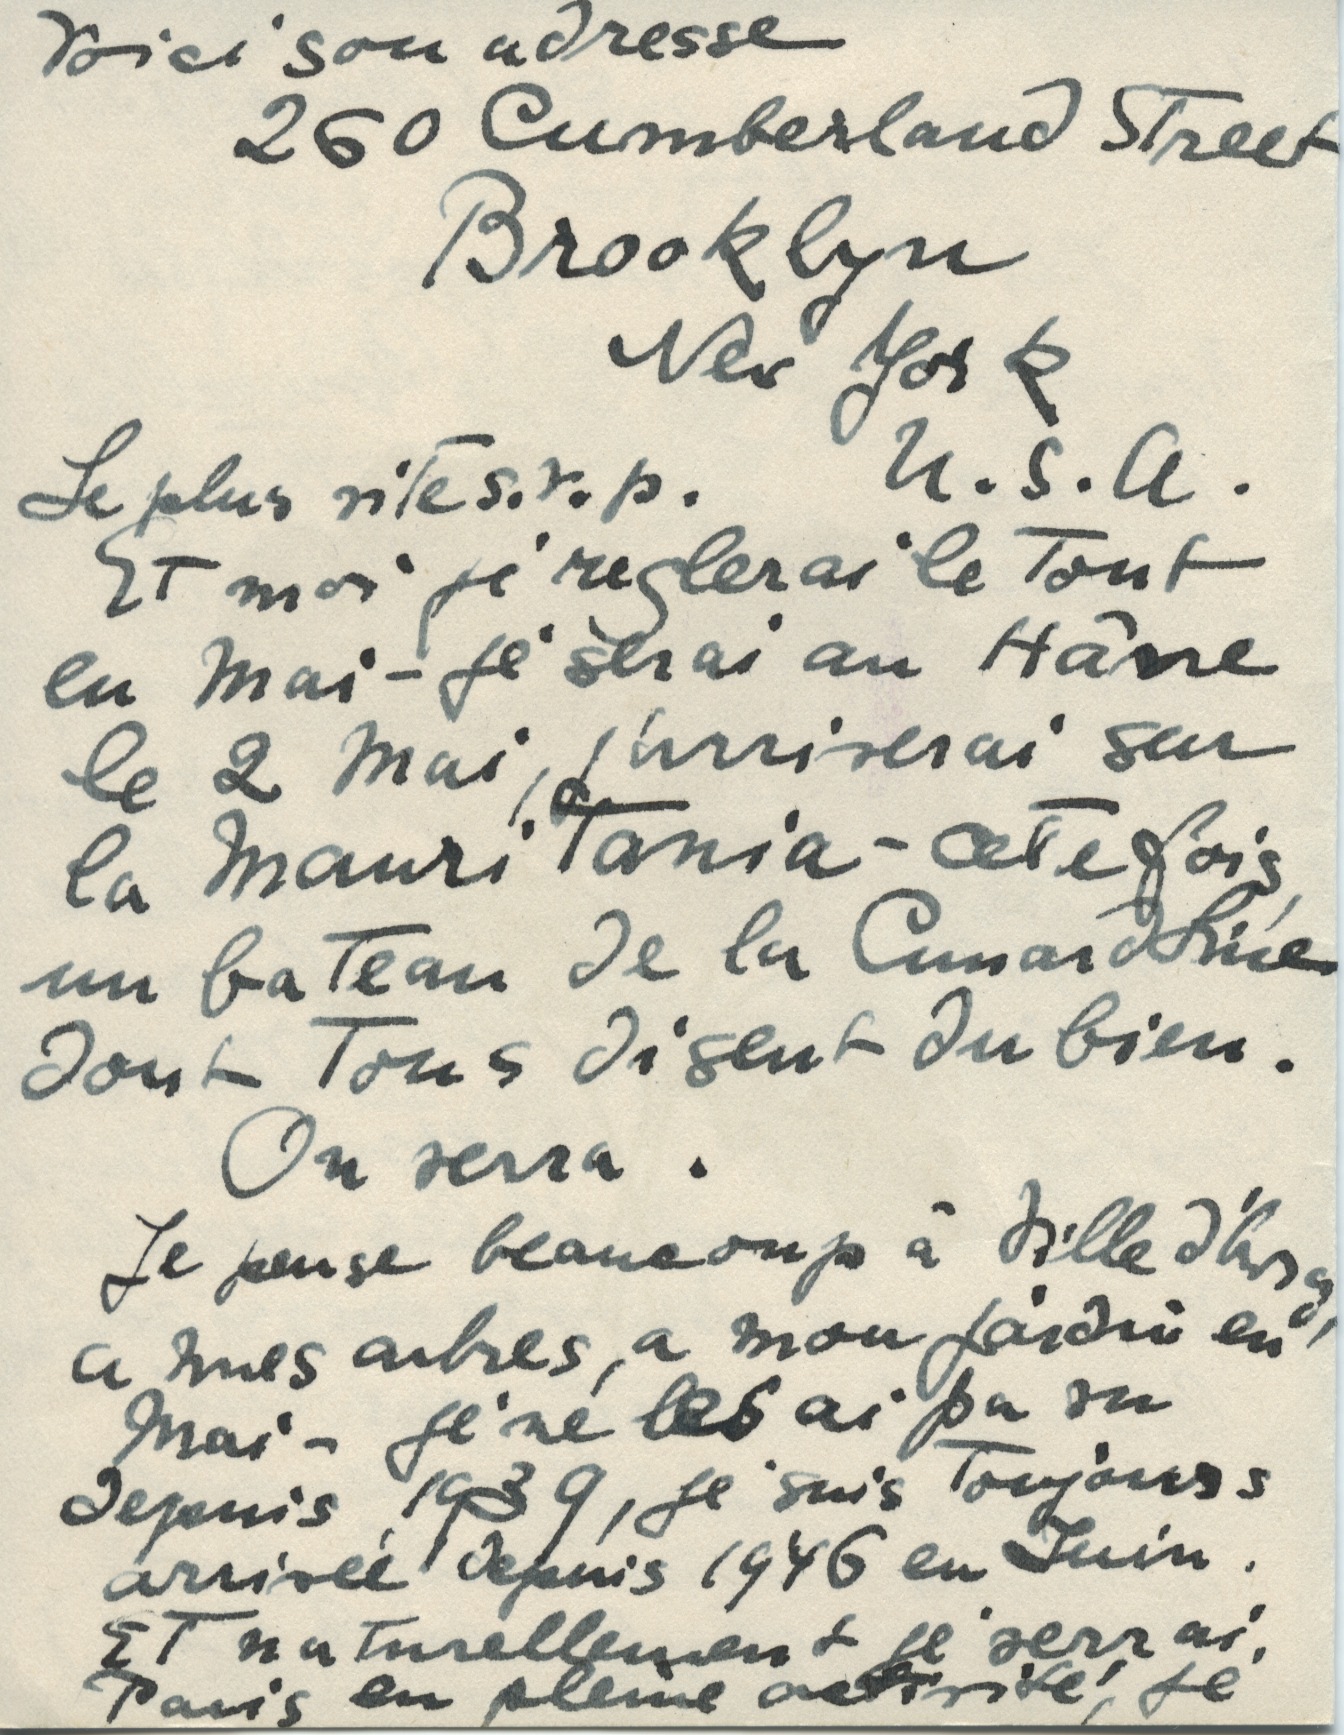 Voici son adresse
260 Cumberland Street
Brooklyn
New York
U.S.A.
Le plus vite s.v.p.
Et moi je reglerai le tout
en Mai - je serai au Hâvre
le 2 Mai, j'arriverai sur
la Mauritania - cette fois,
un bateau de la Cunard Line
dont tous disent du bien.
On verra.
Je pense beaucoup à Ville d'Avray,
a mes arbres, a mon jardin en
Mai - je ne les ai pa vu
depuis 1939, je suis toujours
arrivée depuis 1946 en Juin.
Et naturellement je verrai,
Paris en pleine activité, je